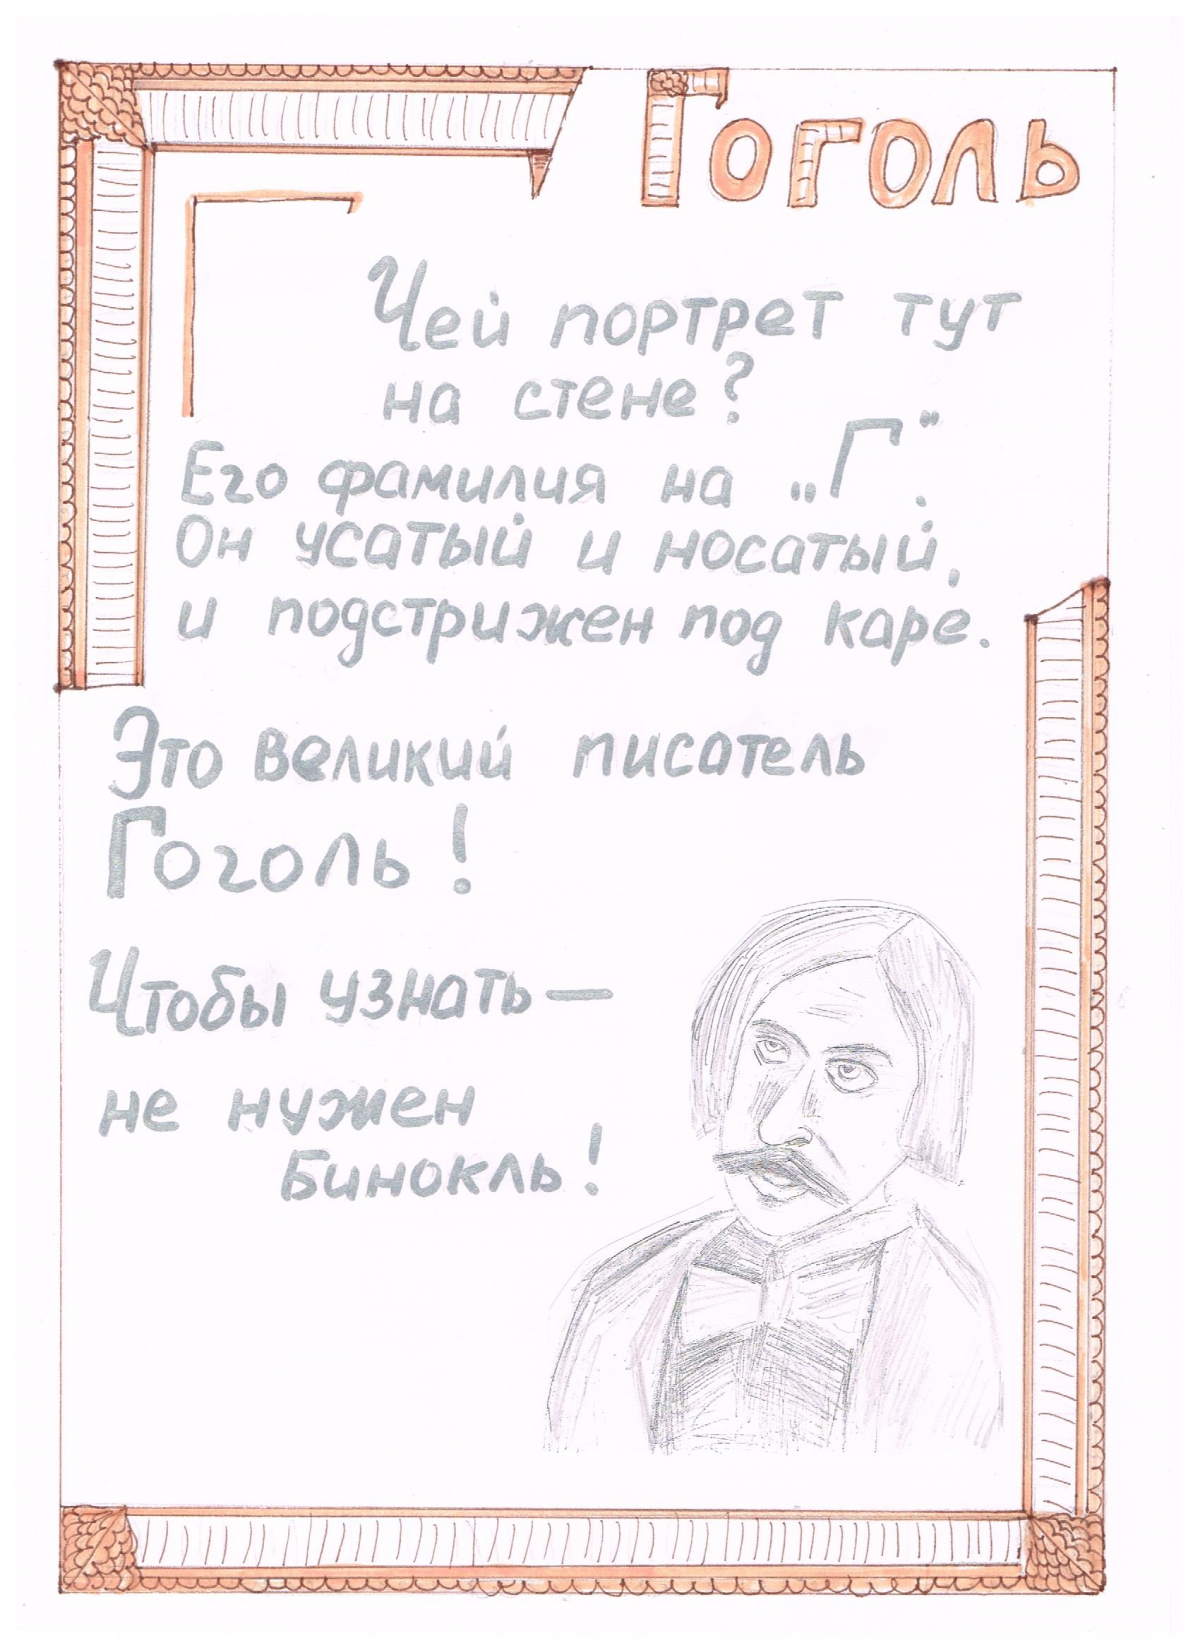 Гоголь
Чей портрет тут
на стене?
Его фамилия на „Г“.
Он усатый и носатый,
и подстрижен под каре.
Это великий писатель
Гоголь!
Чтобы узнать —
не нужен
бинокль!